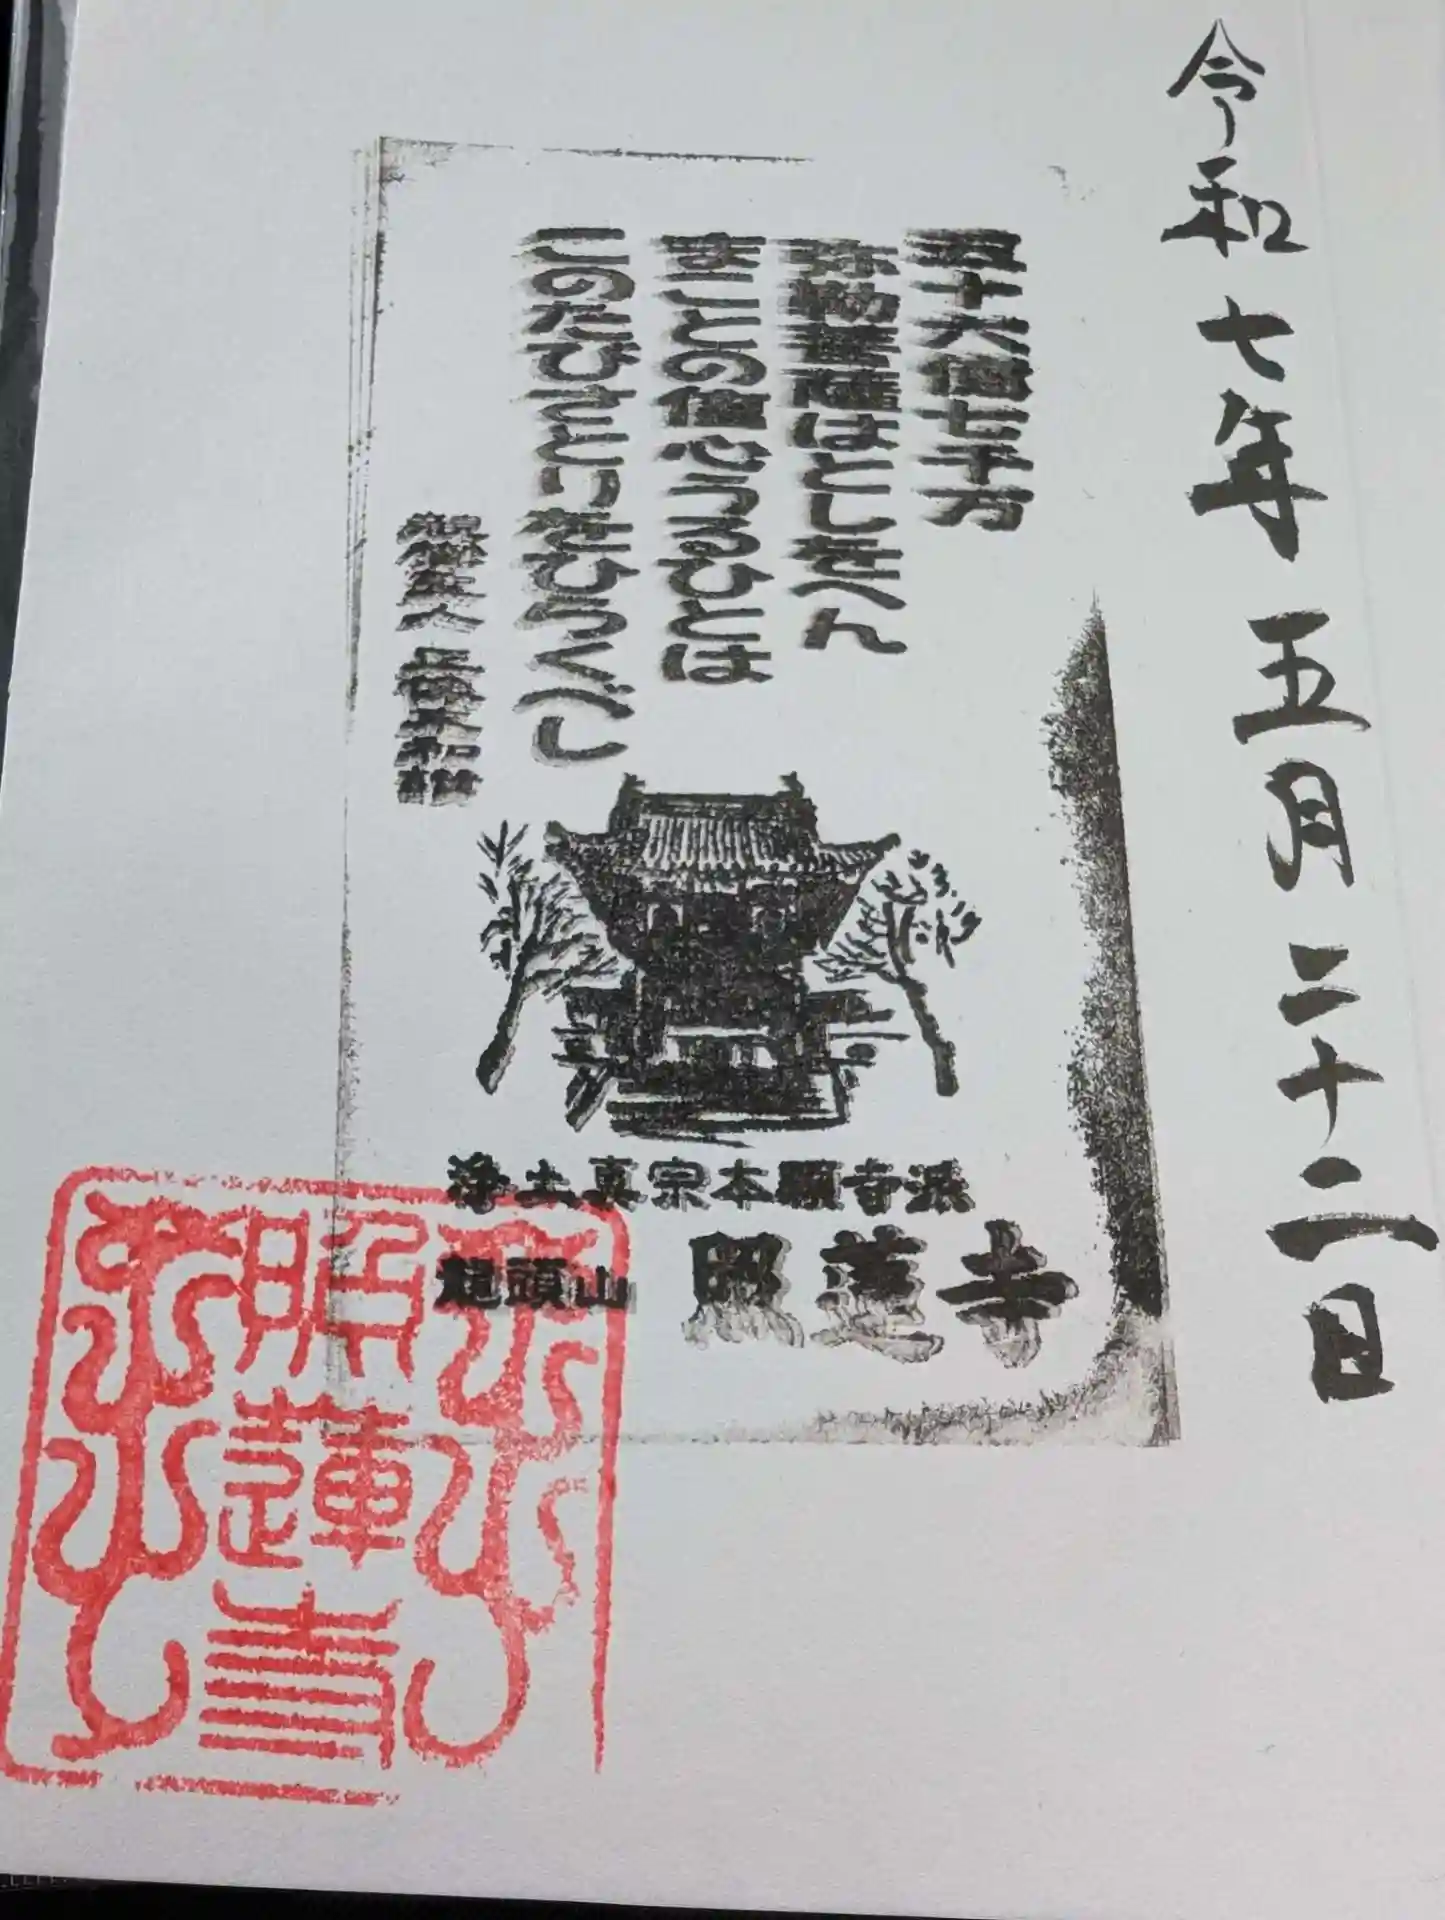 令和七年五月二十二日
五十六億七千万
弥勒菩薩はとしをへん
まことの信心うるひとは
このたびさとりをひらくべし
親鸞聖人 正像末和讃
浄土真宗本願寺派
龍頭山 照蓮寺
照蓮寺